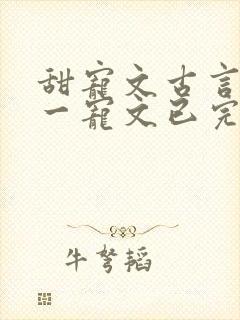 甜寵文古言
一寵文已完
牛弩韬